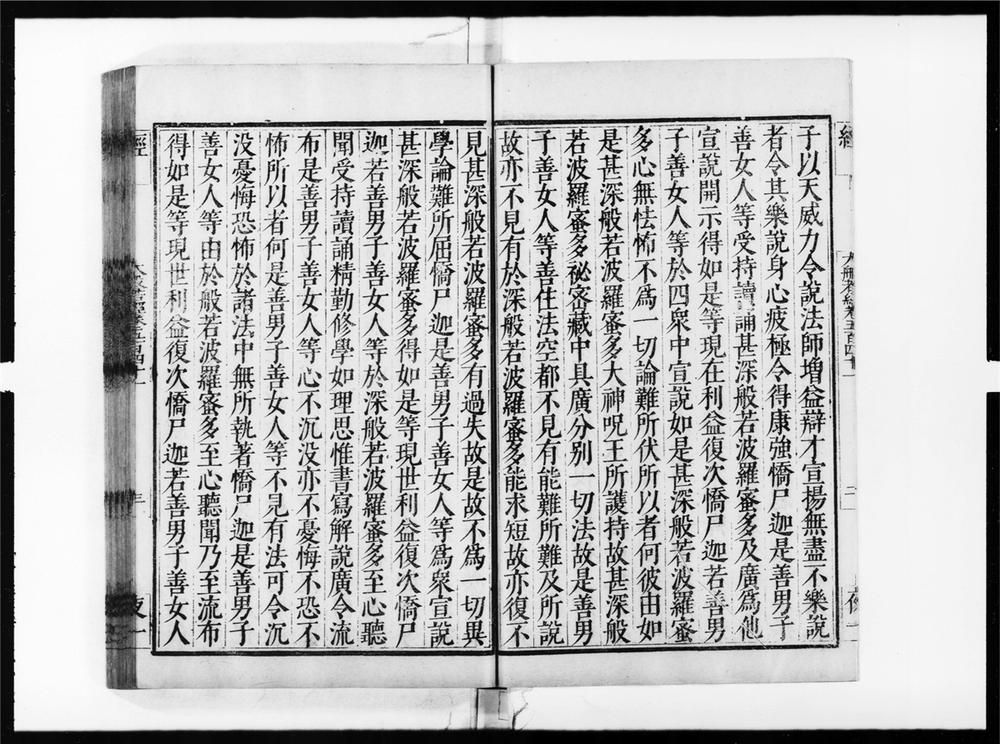 子以天威力令說法師增益辯才宣揚無盡不樂說
者令其樂說身心疲極令得康強憍尸迦是善男子
善女人等受持讀誦甚深般若波羅蜜多及廣為他
宣說開示得如是等現在利益復次憍尸迦若善男
子善女人等於四衆中宣說如是甚深般若波羅蜜
多心無怯怖不爲一切論難所伏所以者何彼由如
是甚深般若波羅蜜多大神呪王所護持故甚深般
若波羅蜜多祕密藏中具廣分別一切法故是善男
子善女人等善住法空都不見有能難所難及所說
故亦不見有於深般若波羅蜜多能求短故亦復不
見甚深般若波羅蜜多有過失故是故不爲一切異
學論難所屈憍尸迦是善男子善女人等爲衆宣說
甚深般若波羅蜜多得如是等現世利益復次憍尸
迦若善男子善女人等於深般若波羅蜜多至心聽
聞受持讀誦精勤修學如理思惟書寫解說廣令流
布是善男子善女人等心不沉没亦不憂悔不恐不
怖所以者何是善男子善女人等不見有法可令沉
没憂悔恐怖於諸法中無所執著憍尸迦是善男子
善女人等由於般若波羅蜜多至心聽聞乃至流布
得如是等現世利益復次憍尸迦若善男子善女人
經